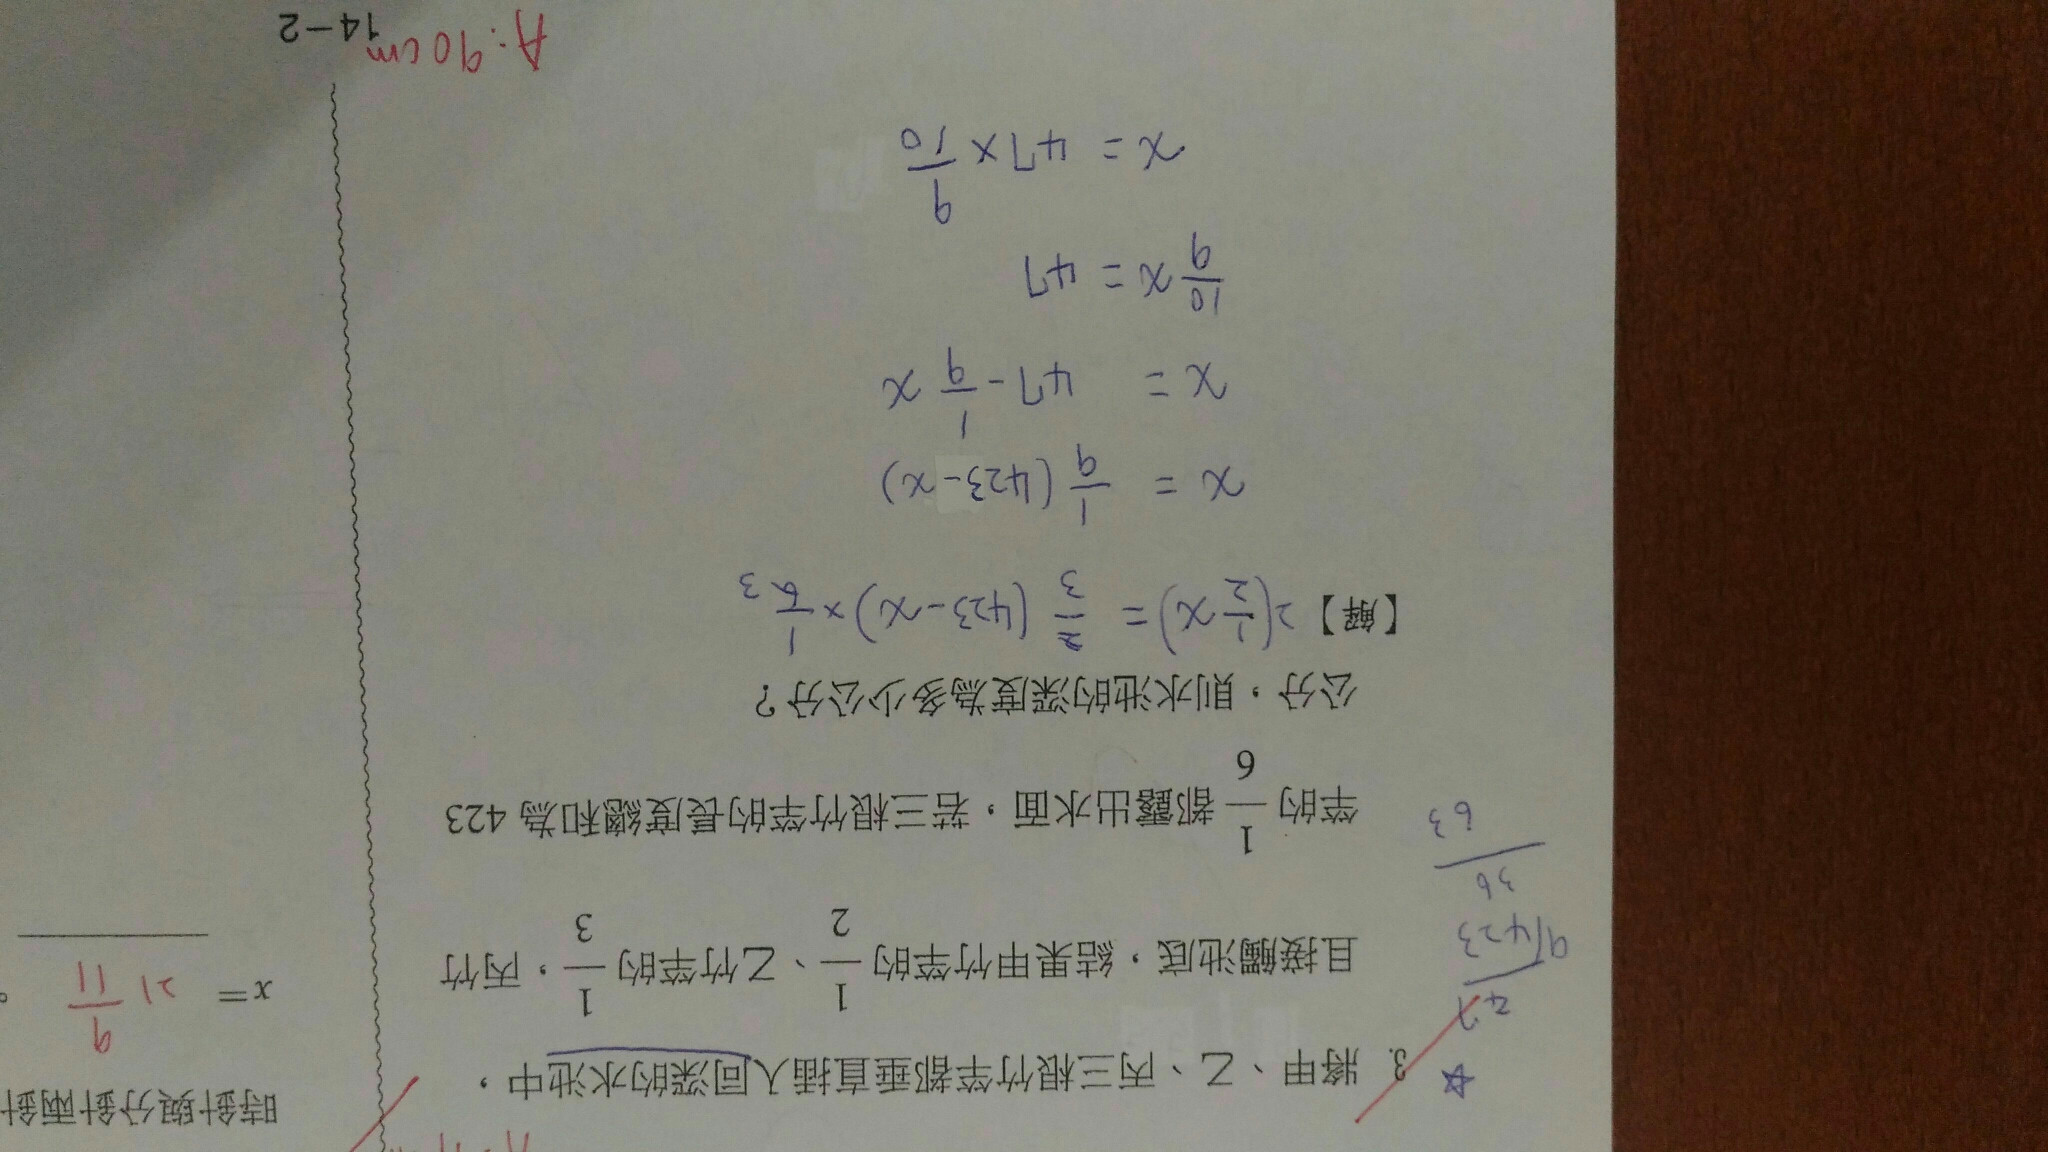 3. 將甲、乙、丙三根竹竿都垂直插入同深的水池中，
且接觸池底，結果甲竹竿的 1/2、乙竹竿的 1/3，丙竹
竿的 1/6 都露出水面，若三根竹竿的長度總和為 423
公分，則水池的深度為多少公分？
【解】 2(1/2 x) = 2/3 (423-x) × 1/6 3
x = 1/9 (423-x)
x = 47 - 1/9 x
10/9 x = 47
x = 47 × 9/10
47
9 423
36
63
時針與分針兩針
x = 21 9/11 。
A: 90 cm
14−2